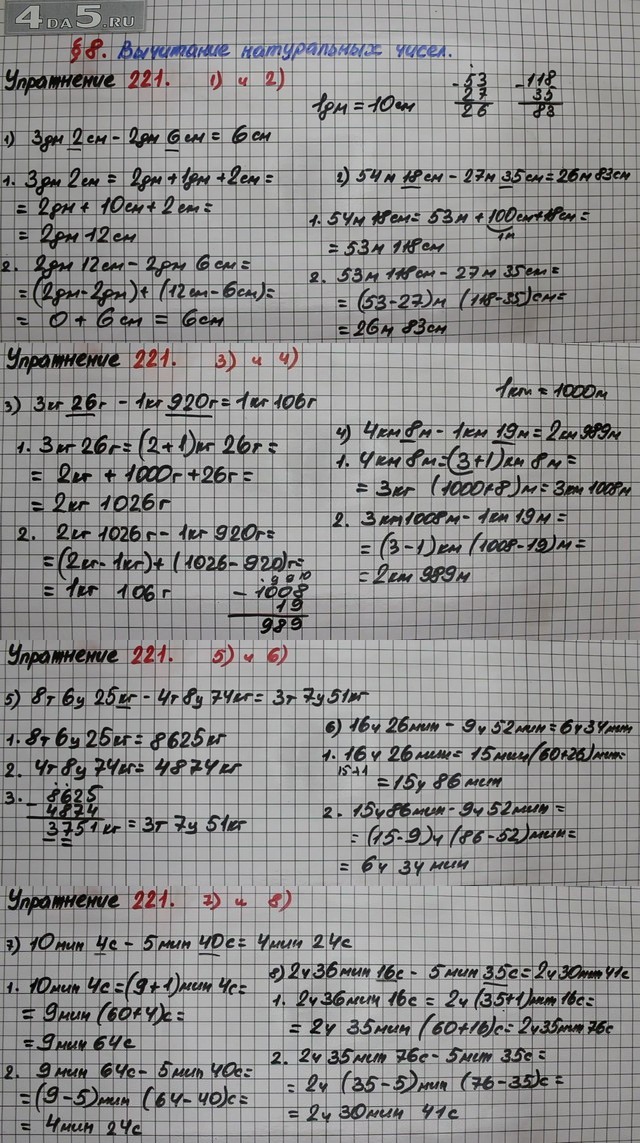 4DA5.RU
§8. Вычитание натуральных чисел.
Упражнение 221. 1) и 2)
1дм = 10см
- 53
27
26
- 118
35
83
1) 3дм 2см - 2дм 6см = 6см
1. 3дм 2см = 2дм + 1дм + 2см =
= 2дм + 10см + 2см =
= 2дм 12см
2. 2дм 12см - 2дм 6см =
= (2дм-2дм) + (12см-6см) =
= 0 + 6см = 6см
2) 54м 18см - 27м 35см = 26м 83см
1. 54м 18см = 53м + 100см + 18см =
1м
= 53м 118см
2. 53м 118см - 27м 35см =
= (53-27)м (118-35)см =
= 26м 83см
Упражнение 221. 3) и 4)
1км = 1000м
3) 3кг 26г - 1кг 920г = 1кг 106г
1. 3кг 26г = (2+1)кг 26г =
= 2кг + 1000г + 26г =
= 2кг 1026г
2. 2кг 1026г - 1кг 920г =
= (2кг-1кг) + (1026-920)г =
= 1кг 106г
9 9 10
- 1008
19
989
4) 4км 8м - 1км 19м = 2км 989м
1. 4км 8м = (3+1)км 8м =
= 3кг (1000+8)м = 3км 1008м
2. 3км 1008м - 1км 19м =
= (3-1)км (1008-19)м =
= 2км 989м
Упражнение 221. 5) и 6)
5) 8т 6ц 25кг - 4т 8ц 74кг = 3т 7ц 51кг
1. 8т 6ц 25кг = 8625кг
2. 4т 8ц 74кг = 4874кг
3. - 8625
4874
3751кг = 3т 7ц 51кг
6) 16ч 26мин - 9ч 52мин = 6ч 34мин
1. 16ч 26мин = 15мин (60+26)мин =
15+1
= 15ч 86мин
2. 15ч 86мин - 9ч 52мин =
= (15-9)ч (86-52)мин =
= 6ч 34мин
Упражнение 221. 7) и 8)
7) 10мин 4с - 5мин 40с = 4мин 24с
1. 10мин 4с = (9+1)мин 4с =
= 9мин (60+4)с =
= 9мин 64с
2. 9мин 64с - 5мин 40с =
= (9-5)мин (64-40)с =
= 4мин 24с
8) 2ч 36мин 16с - 5мин 35с = 2ч 30мин 41с
1. 2ч 36мин 16с = 2ч (35+1)мин 16с =
= 2ч 35мин (60+16)с = 2ч 35мин 76с
2. 2ч 35мин 76с - 5мин 35с =
= 2ч (35-5)мин (76-35)с =
= 2ч 30мин 41с